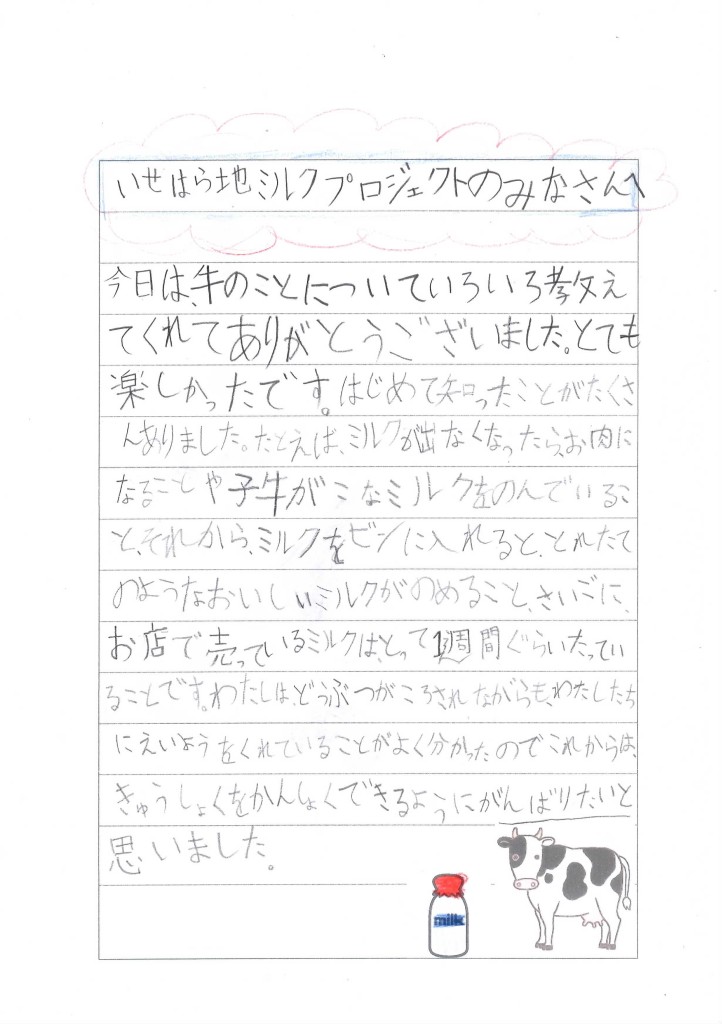 いせはら地ミルクプロジェクトのみなさんへ
今日は、牛のことについていろいろ教え
てくれてありがとうございました。とても
楽しかったです。はじめて知ったことがたくさ
んありました。たとえば、ミルクが出なくなったら、お肉に
なることや子牛がこなミルクをのんでいるこ
と、それから、ミルクをビンに入れると、とれたて
のようなおいしいミルクがのめること、さいごに、
お店で売っているミルクは、とって1週間ぐらいたってい
ることです。わたしは、どうぶつがころされながらも、わたしたち
にえいようをくれていることがよく分かったのでこれからは、
きゅうしょくをかんしょくできるようにがんばりたいと
思いました。
milk